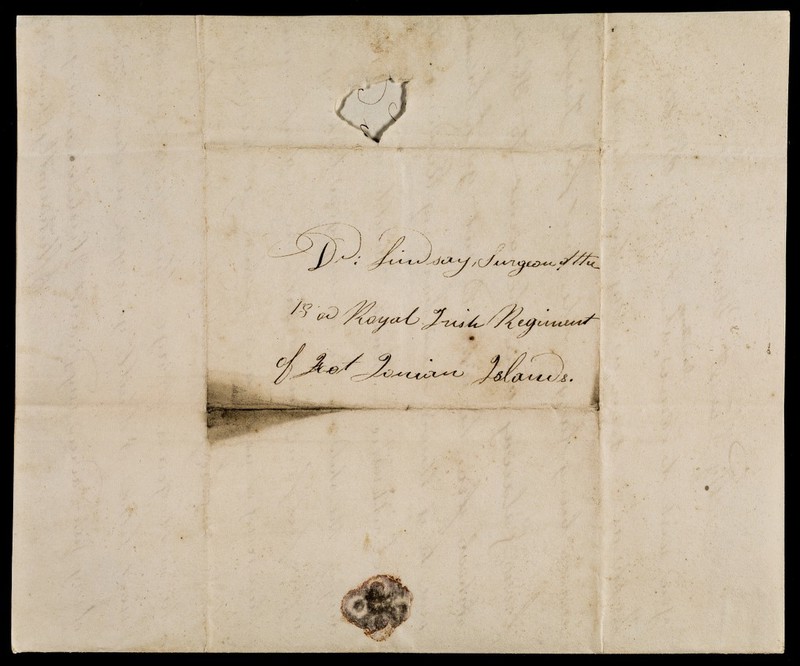 Dr: Lindsay, Surgeon of the
18 or Royal Irish Regiment
of Foot Ionian Islands.